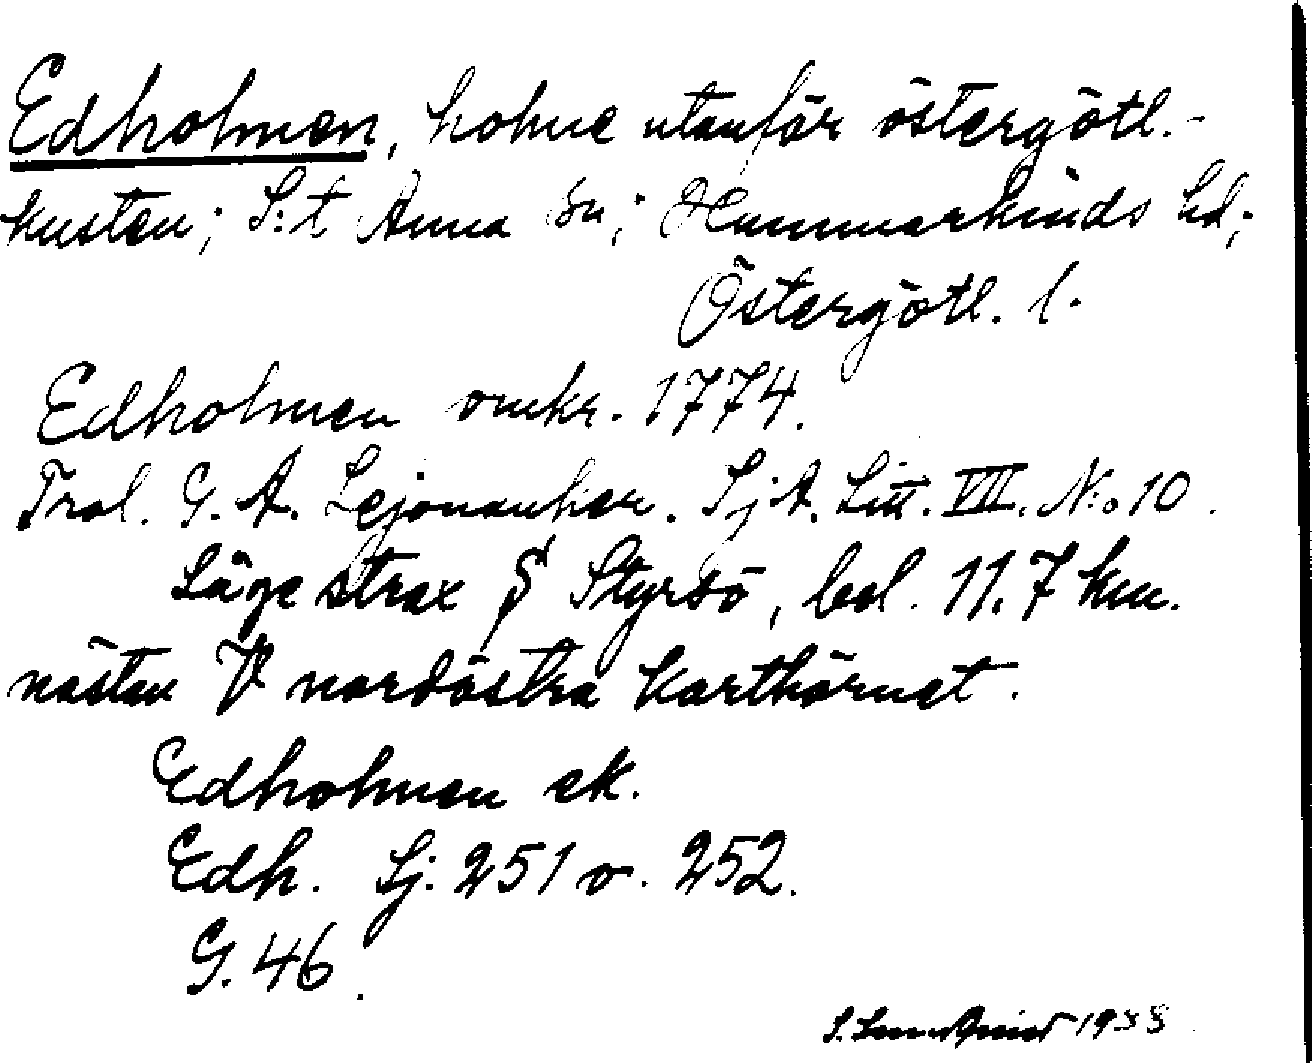 Edholmen, holme utanför östergötl.-
kusten; S:t Anna sn; Hammarkinds hd;
Östergötl. l.
Edholmen omkr. 1774.
Trol. G. A. Lejonanker. SjA. Litt. VII. N:o 10.
Läge strax S Styrsö, bel. 11.7 km.
nästan V nordöstra karthörnet.
Edholmen ek.
Edh. Sj. 251 o. 252.
G. 46.
1938